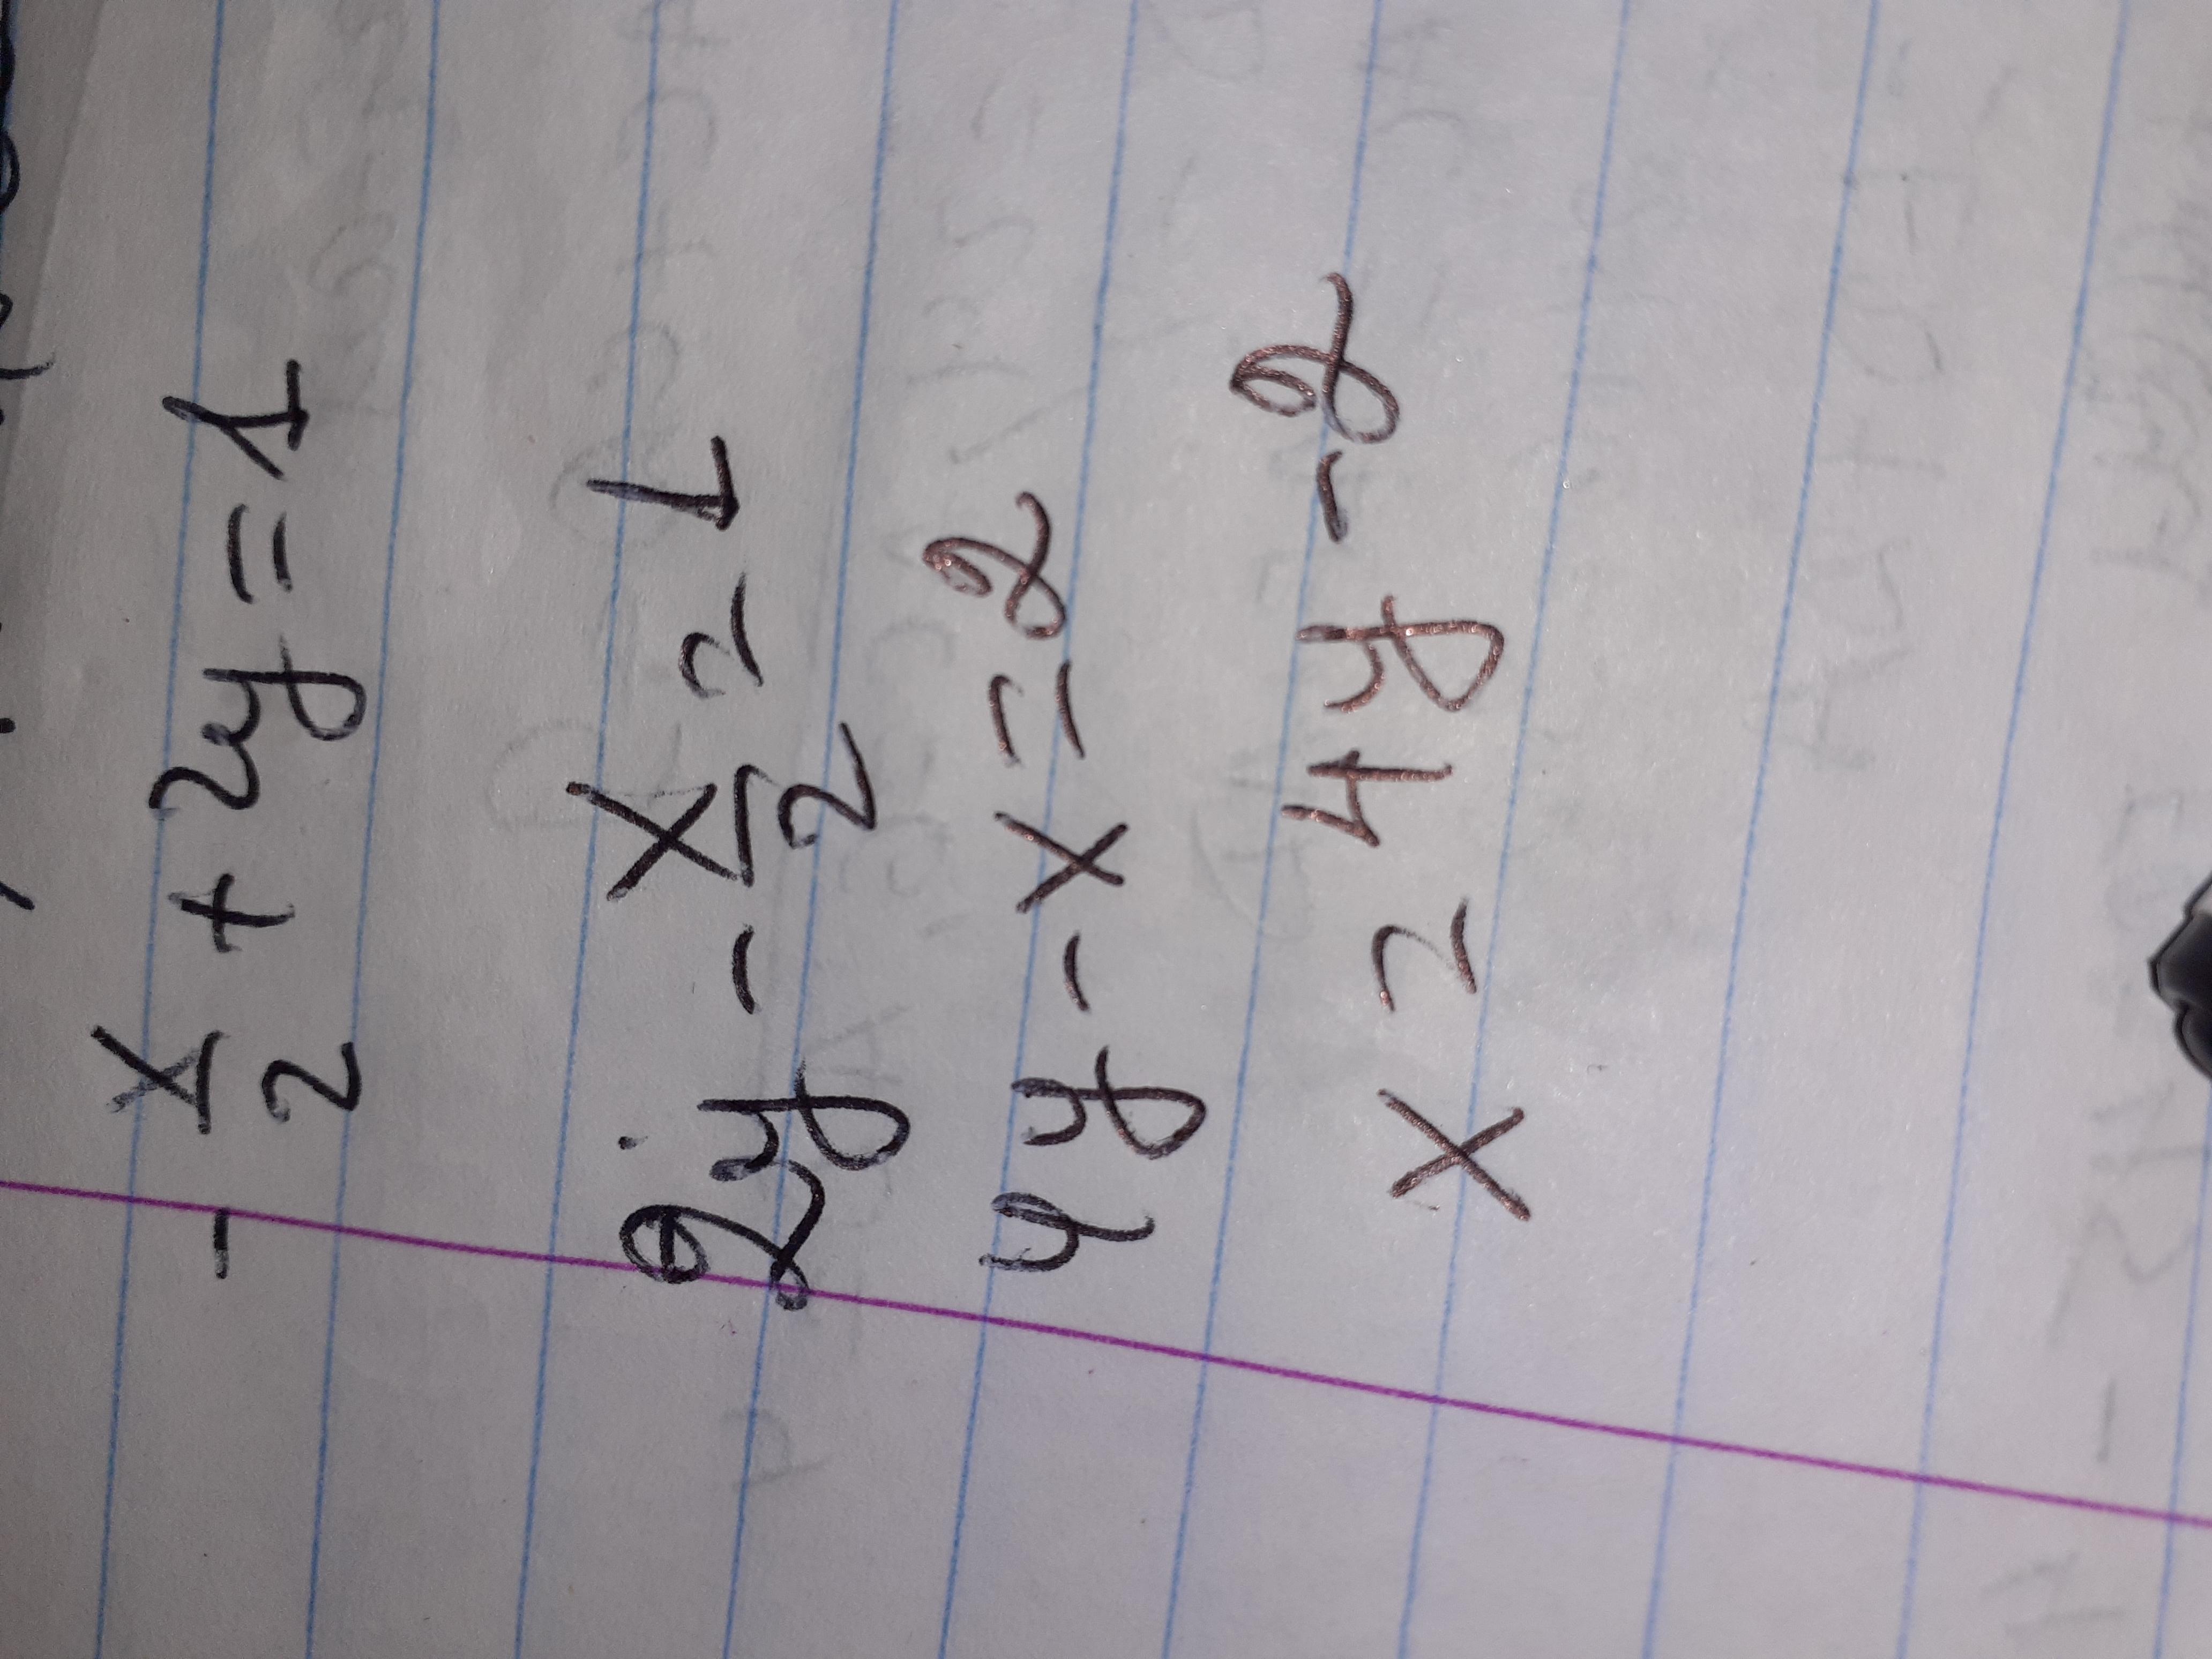 - x/2 + 2y = 1
2y - x/2 = 1
4y - x = 2
x = 4y - 2